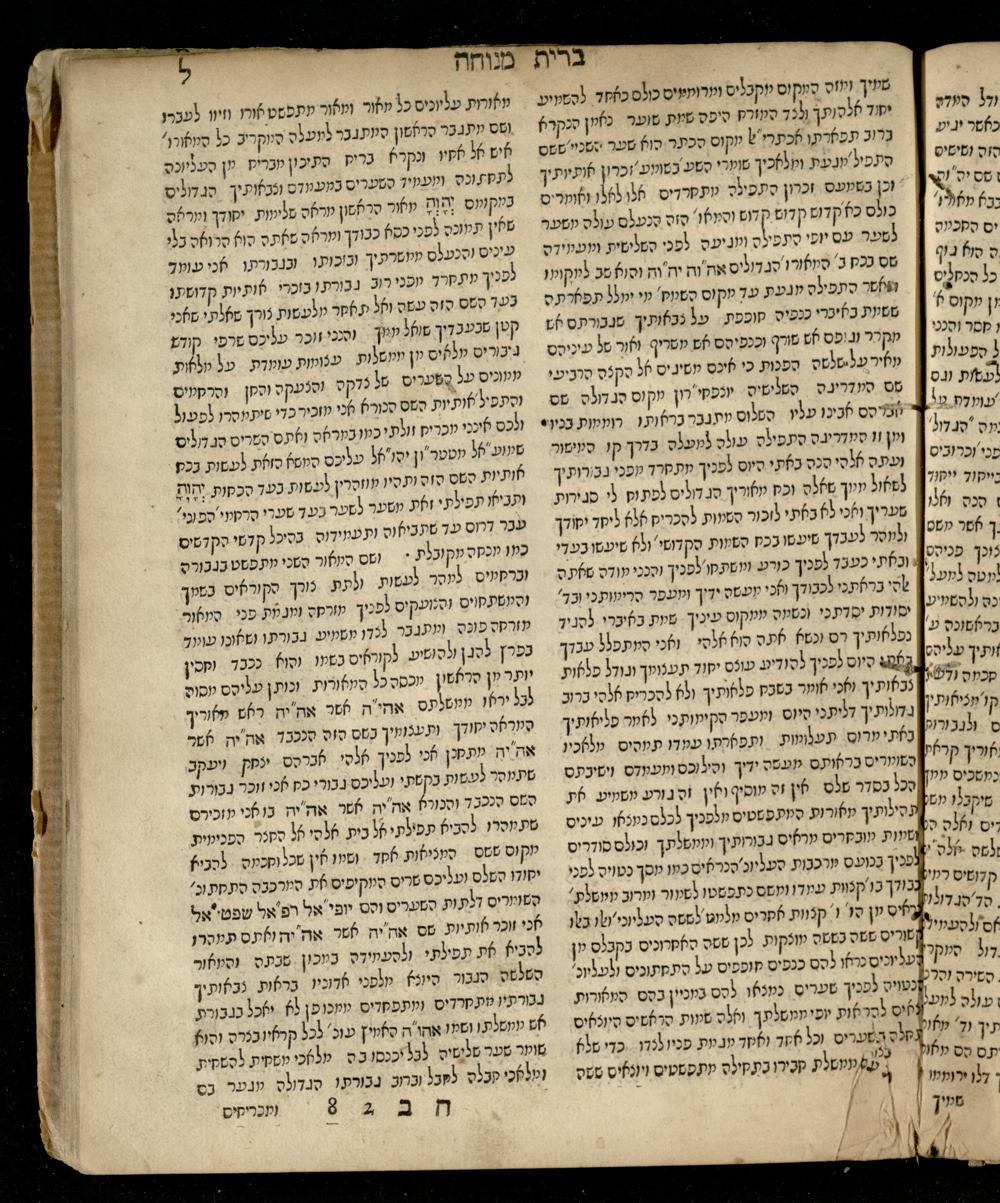 ברית מנוחה
ל
שמיך ומזה המקום מקבלים ומרוממים כולם כאחד להשמיע
יסוד אלהותך ולצד המזרח היפה שמת שוער נאמן הנקרא
ברוב תפארתו אכתרי״אל מקום הכתר הוא שער השני ששם
התפיל׳ מגעת ומלאכיך שומרי השע׳ בשומע׳ זכרון אותיותיך
וכן בשמעם זכרון התפילה מתחרדים אלו לאלו ואומרים
כולם כא׳ קדוש קדוש קדוש והמאו׳ הזה הנעלם עולה משער
לשער עם יופי התפילה ומגיעה לפני השלישית ומעמידה
שם בכח ב׳ המאורו׳ הגדולים אה״וה יה״וה והוא שב למקומו
וכאשר התפילה מגעת עד מקום השמח׳ מי ימלל תפארתה
ששמת באיברי כנפיה חופפת על צבאותיך שגבורתם אש
מקרר וגופם אש שורף וכנפיהם אש משריף ואור של עיניהם
מאיר על שלשה הפנות כי אינם משיגים אל הקצה הרביעי
שם המדרינה השלישיה יונפפי״רון מקום הגדולה שם
אברהם אבינו עליו השלום מתגבר בראותו רוממות בניו
ומן זו המדרינה התפילה עולה למעלה בדרך קו המישור
ועתה אלהי הנה באתי היום לפניך מתחרד מפני גבורותיך
לשאול ממך שאלה וכח מאוריך הגדולים לפתוח לי סגירות
שעריך ואני לא באתי לזכור השמות להכריח אלא ליחד יסודך
ולמהר לעבדך שיעשו בכח השמות הקדושי׳ ולא שיעשו בעדי
ובאתי כעבד לפניך כורע ומשתחו׳ לפניך והנני מודה שאתה
אלהי בראתני לכבודך ואני מעשה ידיך ומעפר הרימותני ובד׳
יסודות יסדתני ונשמה ממקום עיניך שמת באיברי להגיד
נפלאותיך רם ונשא אתה הוא אלהי ואני המתפלל עבדך
באתי היום לפניך להודיע עוצם יסוד תעצומך וגודל פלאות
צבאותיך ואני אומר בשבח פלאותיך ולא להכריח אלהי ברוב
גדולותיך דליתני היום ומעפר הקימותני לאמר פליאותיך
באתי מרום תעלומות ותפארתו עמדו תמהים מלאכיו
השומרים בראותם מעשה ידיך והילוכם ומעמדם וישיבתם
הכל בסדר שלם אין זה מוסיף ואין זה גורע משמיע את
תהילותיך מאורות המתפשטים מלפניך לכלם נמצאו עינים
ושמות מובחרים מראים גבורותיך וממשלתך וכולם סודרים
לפניך בנועם מרכבות העליונ׳ הנראים כמו מסך נטויה לפני
כבודך בו׳ קצוות עמדו ומשם נתפשטו לשמור ומרוב ממשלת׳
נראים מן הו׳ ו׳ קצוות אחרים מלמט׳ לששה העליוני׳
קשורים ששה בששה מוצקות לכן ששה האחרונים בקבלם מן
העליונים נראו להם כנפים חופפים על התחתונים ולעליונ׳
הנטויה לפניך שערים נמצאו להם במניין בהם המאורות
נאים להראות יופי ממשלתך ואלה שמות הראשים היוצאים
תחלה בשערים וכל אחד ואחד מגמת פניו לצדו כדי שלא
ממשלת חבירו בתחילה מתפשטים ויוצאים ששה
מאורות עליונים כל מאור ומאור מתפשט אורו וזיוו לעברו
ושם מתגבר הראשון המתגבר למעלה המקריב כל המאורו׳
איש אל אחיו ונקרא בריח התיכון מבריח מן העליונה
לתחתונה ומעמיד השערים במעמדם וצבאותיך הגדולים
במקומם יְהֶוָהָ מאור הראשון מראה שלימות יסודך ומראה
שאין תמונה לפני כסא כבודך ומראה שאתה הוא הרואה בלי
עינים והנעלם ממשרתיך ובזכותו ובגבורתו אני עומד
לפניך מתחרד מפני רוב גבורתו בזוכרי אותיות קדושתו
בעד השם הזה עשה ואל תאחר מלעשות צורך שאלתי שאני
קטן שבעבדיך שואל ממך והנני זוכר עליכם שרפי קודש
גיבורים מלאים מן ממשלות עצומות עומדת על מלאות
ממונים על השערים של צדקה והצעקה והחן והרחמים
והתפיל׳ אותיות השם הנורא אני מזכיר כדי שיתמהרו לפעול
ולכם אינני מכריח זולתי כמו במראה ואתם השרים הגדולים
שמוע״אל מטטר״ון יהו״אל עליכם המשא הזאת לעשות בכח
אותיות השם הזה ותהיו מוזהרין לעשות בעד הכחות יְהֶוָהָ
ותביאו תפילתי זאת משער לשער בעד שערי הרחמי׳ הפוני׳
עבר דרום עד שתביאוה ותעמידוה בהיכל קדשי הקדשים
כמו מנחה מקובלת · ושם המאור השני מתפשט בגבורה
וברחמים למהר לעשות ולתת צורך הקוראים בשמך
והמשתחוים והצועקים לפניך מזרחה ומגמת פני המאור
מזרחה פונה ומתגבר לצדו משמיע גבורתו ושאונו עומד
בפרץ להגן ולהושיע לקוראים בשמו והוא נכבד וחסין
יותר מן הראשון מכסה כל המאורות ונותן עליהם מסוה
לבל יראו ממשלתם אהי״ה אשר אה״יה ראש מאוריך
המראה יסודך ותעצומיך בשם הזה הנכבד אה״יה אשר
אה״יה מתחנן אני לפניך אלהי אברהם יצחק ויעקב
שתמהר לעשות בקשתי ועליכם גבורי כח אני זוכר גבורות
השם הנכבד והנורא אה״יה אשר אה״יה בו אני מזכירם
שתמהרו להביא תפילתי אל בית אלהי אל החצר הפנימית
מקום ששם המציאות אחד ושמו אין שכל וחכמה להביא
יסודו השלם ועליכם שרים המקיפים את המרכבה התחתונ׳
השומרים דלתות השערים והם יופי״אל רפ״אל שפטי״אל
אני זוכר אותיות שם אה״יה אשר אה״יה ואתם תמהרו
להביא את תפילתי ולהעמידה במכון שבתה והמאור
השלשה הגבור היוצא מלפני אדוניו בראות צבאותיך
גבורתיו מתחרדים ומתפחדים ממכופן לא יאכל בגבורת
אש ממשלתו ושמו אהו״ה האמיץ עונ׳ לכל קראיו בצרה והוא
שומר שער שלישיה לבל יכנסו בה מלאכי משחית להשחית
ומלאכי חבלה לחבל וברוב גבורתו הגדולה מגער בם
ח ב 2 8
ומבריחים